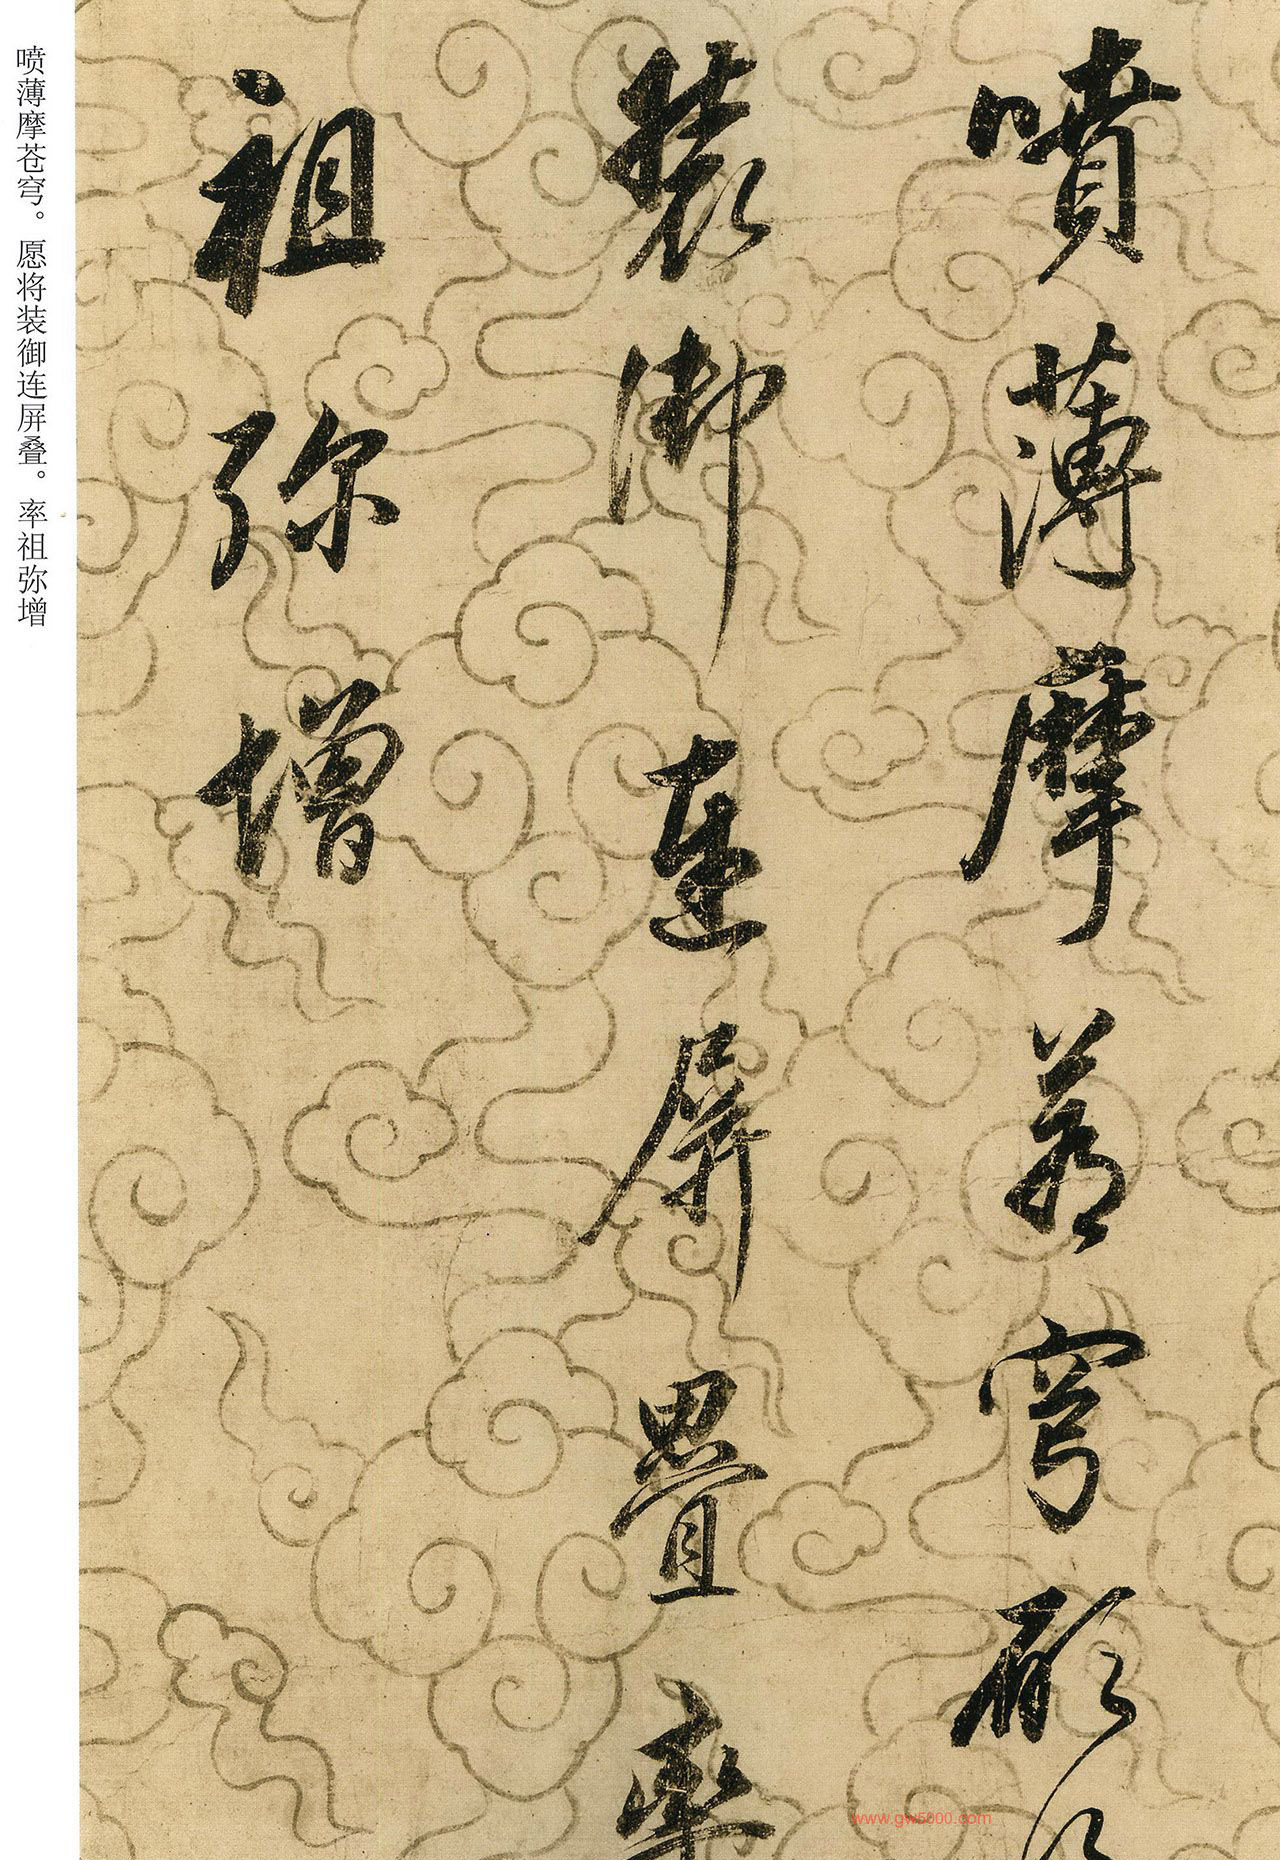 噴薄摩蒼穹願將
裝御連屏疊率
祖弥增
喷薄摩苍穹。愿将装御连屏叠。率祖弥增
www.gw5000.com